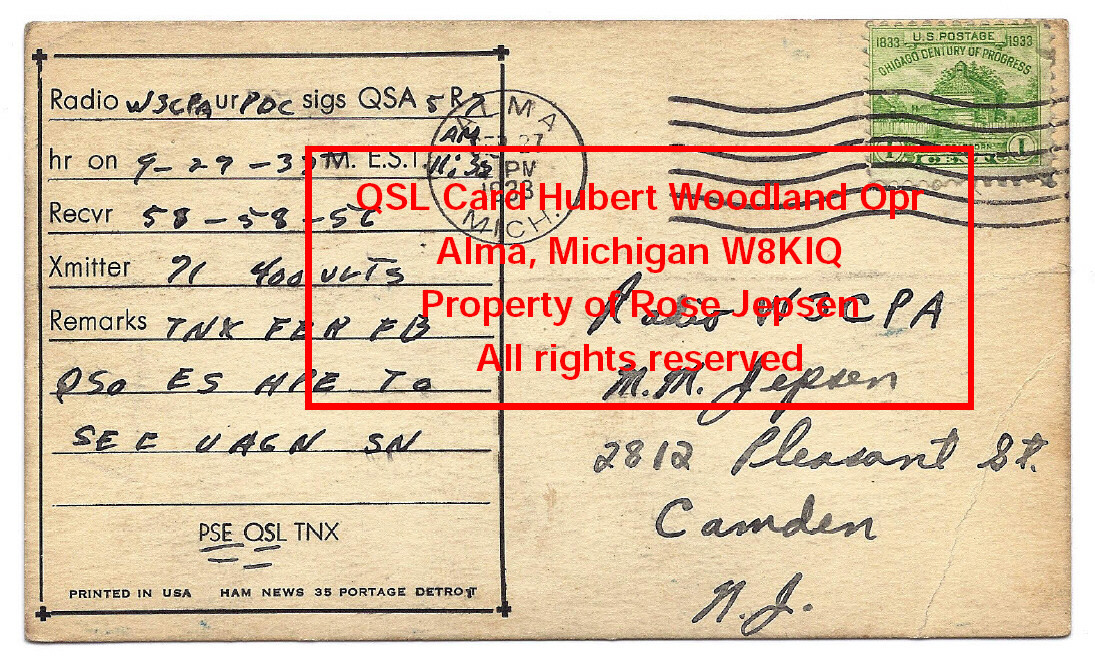 Radio W3CPA ur PDC sigs QSA 5 R7
hr on 9-29-33 M. E.S.T. AM 11:35
Recvr 58-58-56
Xmitter 71 400 VLTS
Remarks TNX FER FB
QSO ES HPE TO
SEE U AGN SN
PSE QSL TNX
PRINTED IN USA HAM NEWS 35 PORTAGE DETROIT
ALMA
27
PM
1933
MICH.
1833 U.S. POSTAGE 1933
CHICAGO CENTURY OF PROGRESS
1 CENT 1
QSL Card Hubert Woodland Opr
Alma, Michigan W8KIQ
Property of Rose Jepsen
All rights reserved
Radio W3CPA
M.M. Jepsen
2812 Pleasant St.
Camden
N.J.